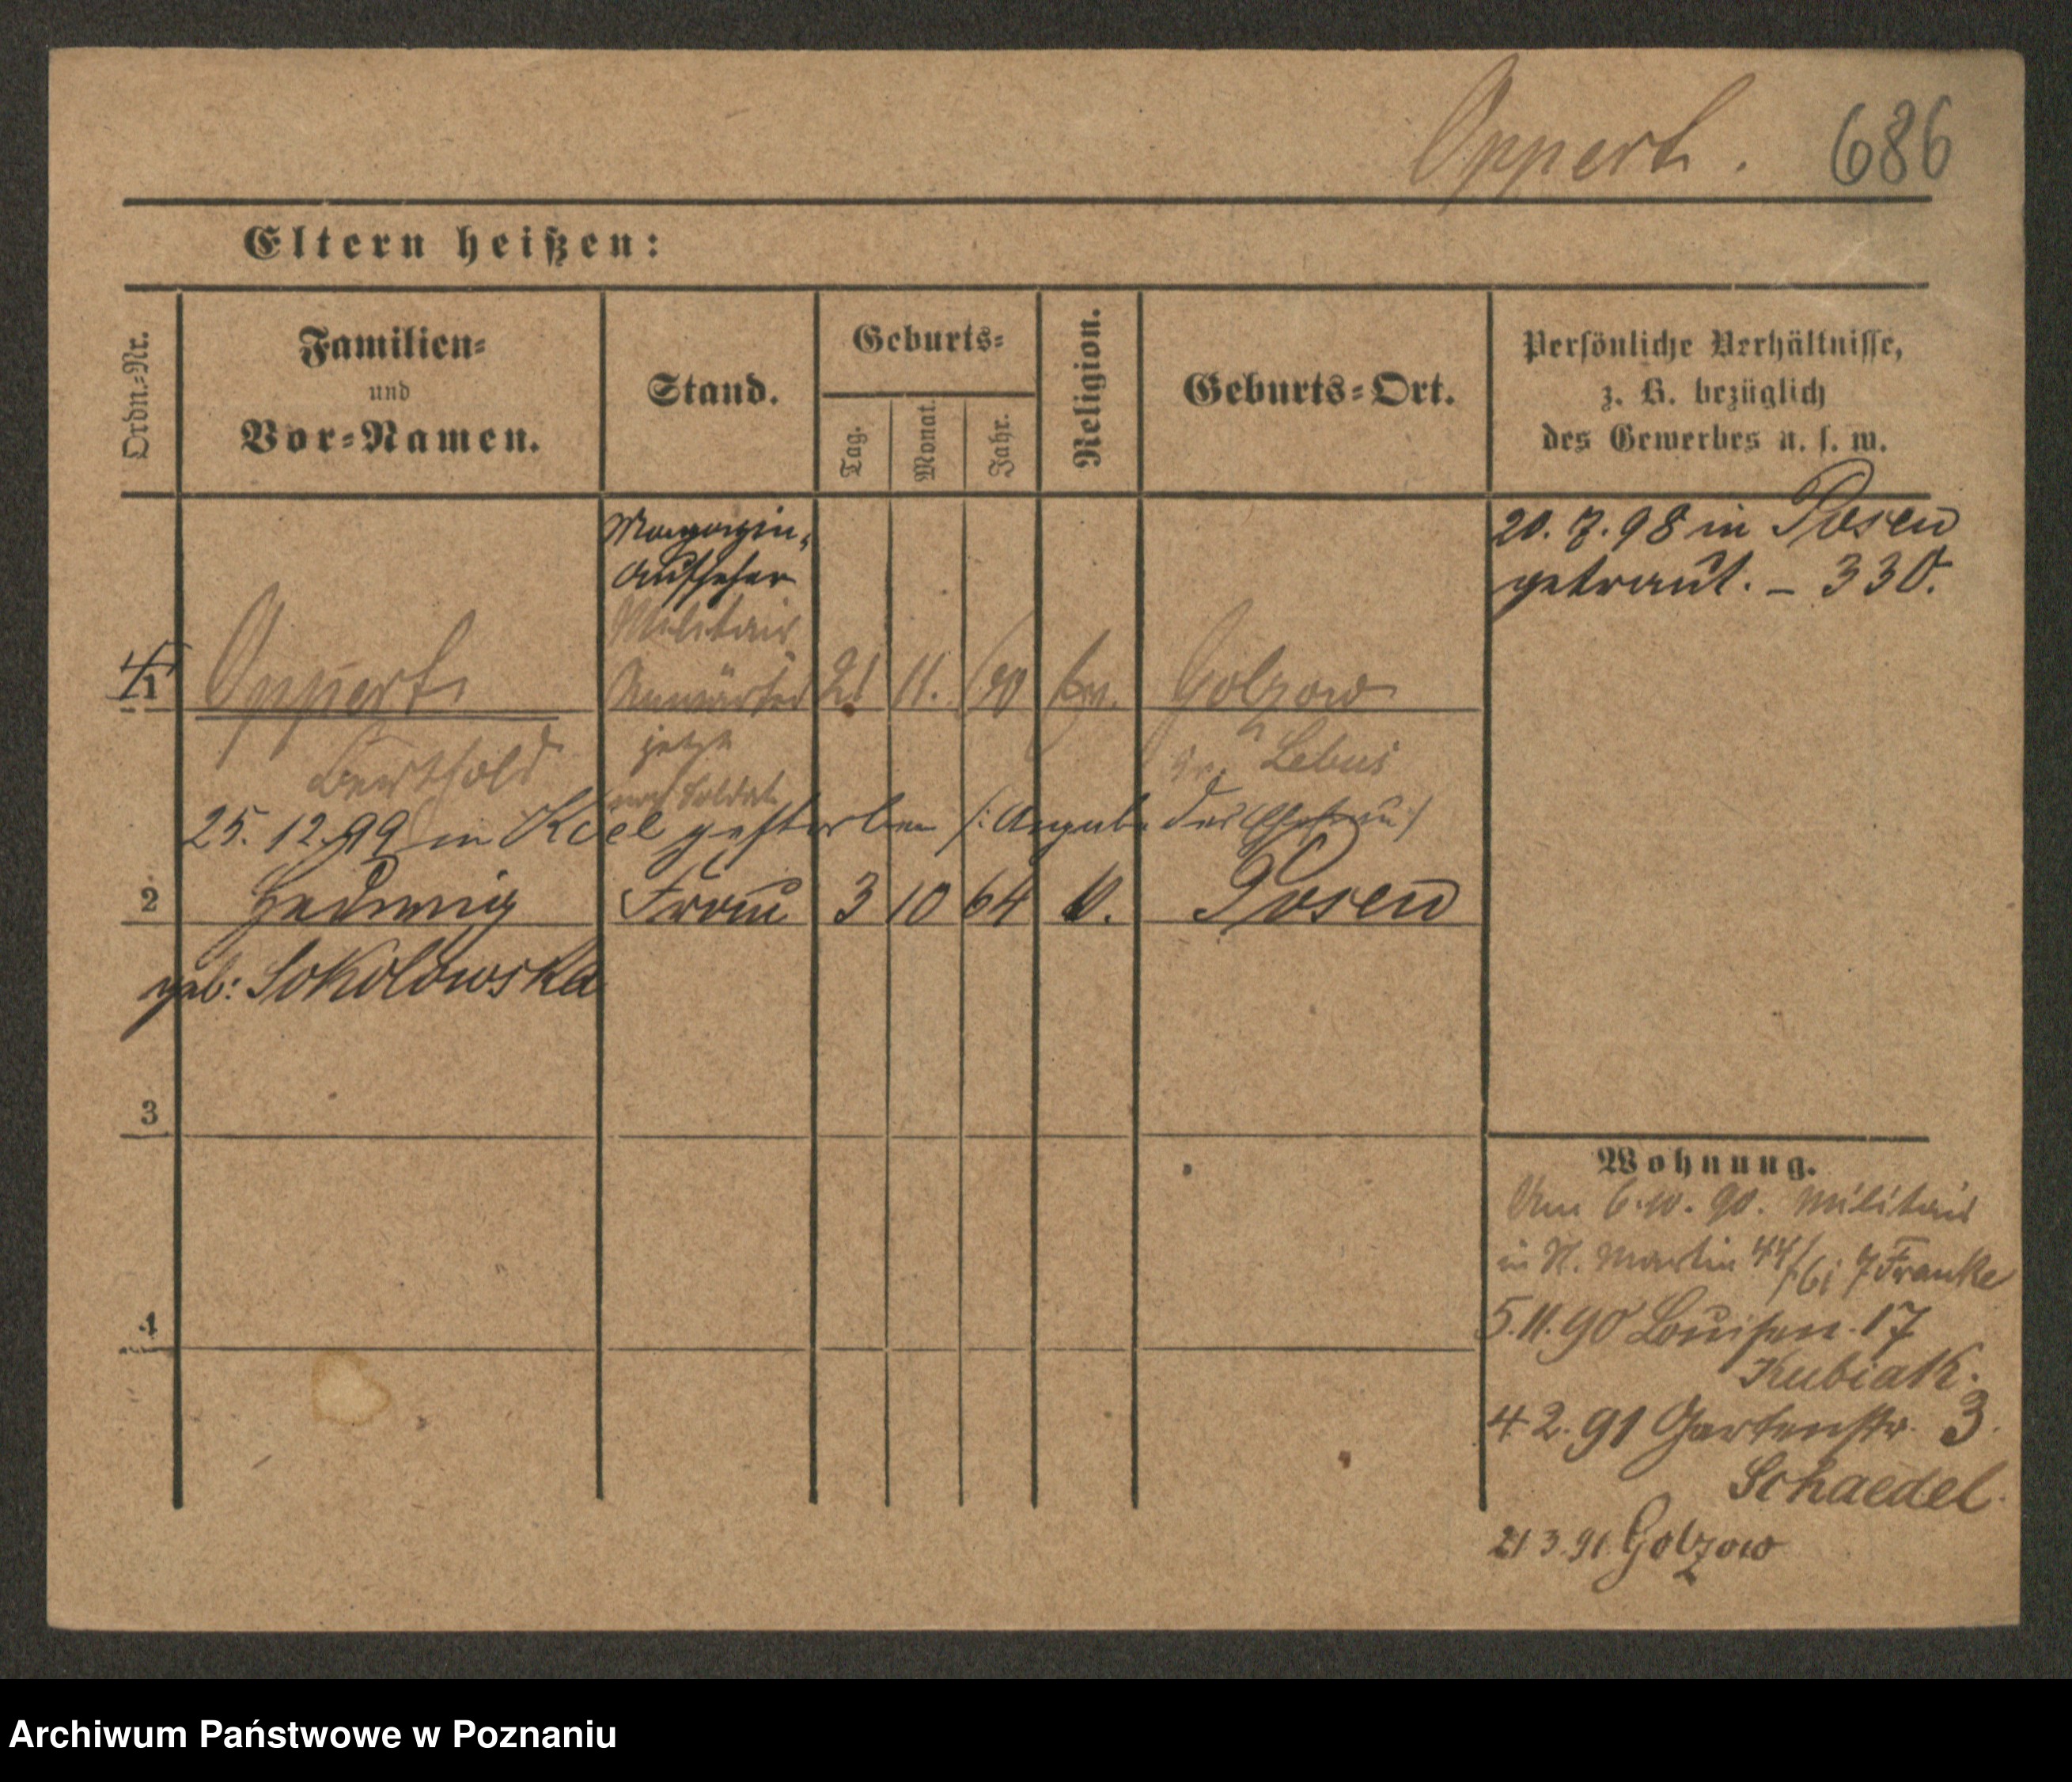 Oppert. 686
Eltern heißen:
Ordn.-Nr.
Familien-
und
Vor-Namen.
Stand.
Geburts-
Tag.
Monat.
Jahr.
Religion.
Geburts-Ort.
Persönliche Verhältnisse,
z. B. bezüglich
des Gewerbes u. s. w.
Magazin-
Aufseher
Militair
20. 7. 98 in Posen
getraut. – 330.
1 Oppert Anwärter 21 11. 60 ev. Golzow
Berthold
jetzt
noch Soldat
Lebus
25. 12. 99 in Kiel gestorben /: Angabe der Ehefrau /
2 Hedwig Frau 3 10 64 k. Posen
geb: Sokolowska
3
4
Wohnung.
Am 6. 10. 90. Militair
in St. Martin 44/ bei Franke
5. 11. 90 Louisen. 17
Kubiak.
4 2. 91 Gartenstr. 3.
Schaedel.
21 3. 91. Golzow
Archiwum Państwowe w Poznaniu